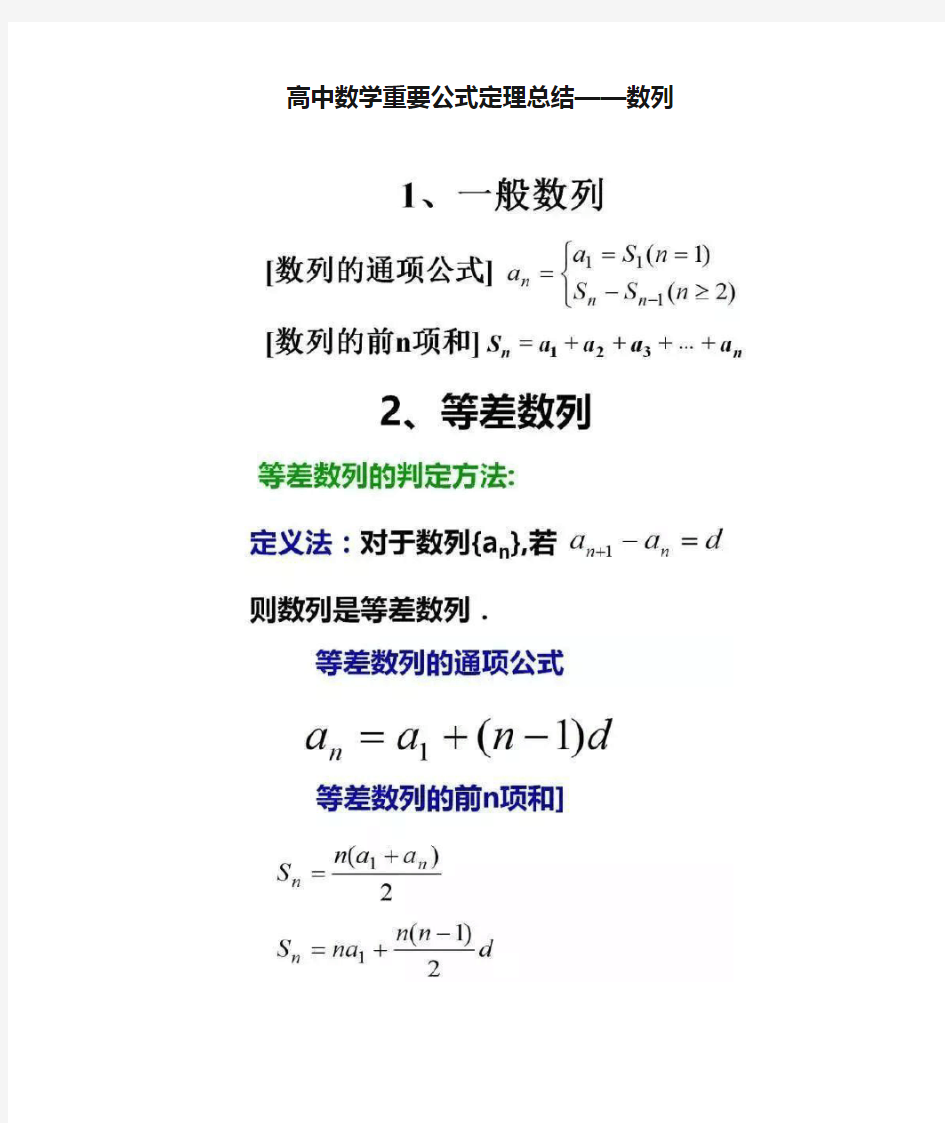 高中数学重要公式定理总结——数列
1、一般数列
[数列的通项公式] aₙ = { a₁ = S₁(n = 1)
Sₙ − Sₙ₋₁(n ≥ 2)
[数列的前n项和] Sₙ = a₁ + a₂ + a₃ + ... + aₙ
2、等差数列
等差数列的判定方法:
定义法：对于数列{aₙ},若 aₙ₊₁ − aₙ = d
则数列是等差数列．
等差数列的通项公式
aₙ = a₁ + (n − 1)d
等差数列的前n项和]
Sₙ = n(a₁ + aₙ) / 2
Sₙ = na₁ + n(n − 1) / 2 d